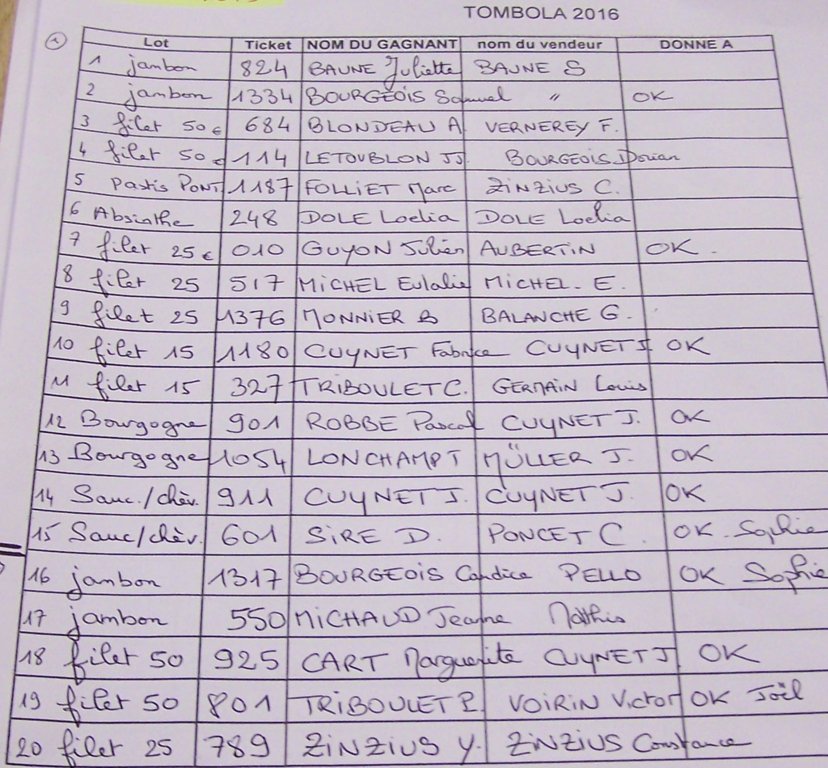 TOMBOLA 2016
1
Lot Ticket NOM DU GAGNANT nom du vendeur DONNE A
1 jambon 824 BAUNE Juliette BAUNE S
2 jambon 1334 BOURGEOIS Samuel " OK
3 filet 50 € 684 BLONDEAU A VERNEREY F.
4 filet 50 € 114 LETOUBLON JJ BOURGEOIS Dorian
5 Pastis PONT 1187 FOLLIET Marc ZINZIUS C.
6 Absinthe 248 DOLE Loelia DOLE Loelia
7 filet 25 € 010 GUYON Julien AUBERTIN OK.
8 filet 25 517 MICHEL Eulalie MICHEL. E.
9 filet 25 1376 MONNIER B BALANCHE G.
10 filet 15 1180 CUYNET Fabrice CUYNET J OK
11 filet 15 327 TRIBOULET C. GERMAIN Louis
12 Bourgogne 901 ROBBE Pascal CUYNET J. OK
13 Bourgogne 1054 LONCHAMPT MÜLLER J. OK
14 Sauc./chèv. 911 CUYNET J. CUYNET J. OK
15 Sauc/chèv. 601 SIRE D. PONCET C. OK. Sophie
16 jambon 1317 BOURGEOIS Candice PELLO OK Sophie
17 jambon 550 MICHAUD Jeanne Mathis
18 filet 50 925 CART Marguerite CUYNET J OK
19 filet 50 801 TRIBOULET P. VOIRIN Victor OK Joël
20 filet 25 789 ZINZIUS Y. ZINZIUS Constance